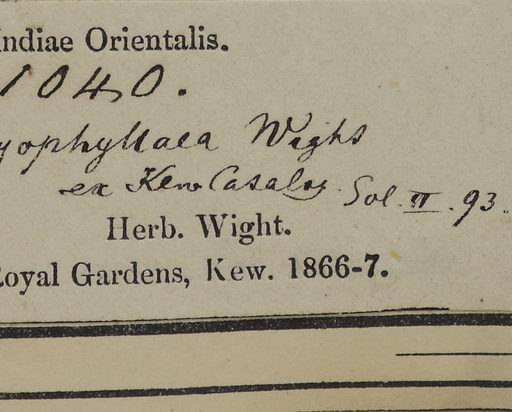 Indiae Orientalis.
1040.
yophyllaea Wight
ex Kew Catalog. Sol. II. 93.
Herb. Wight.
Royal Gardens, Kew. 1866-7.